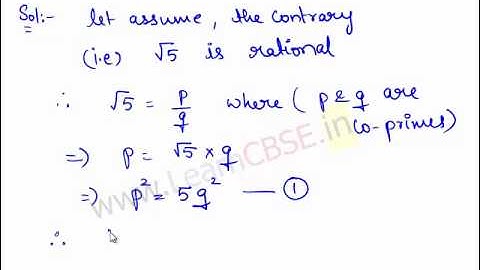 Sol:- let assume, the contrary
(i.e) √5 is rational
∴ √5 = p/q where ( p & q are
co-primes)
⇒) p = √5 × q
⇒) p² = 5q² — ①
∴
www.LearnCBSE.in